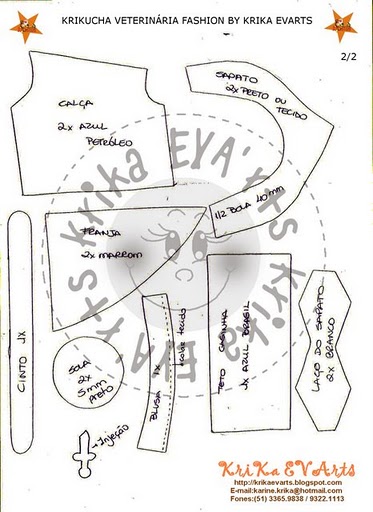 KRIKUCHA VETERINÁRIA FASHION BY KRIKA EVARTS
2/2
CALÇA
2x AZUL
PETRÓLEO
SAPATO
2x PRETO OU
TECIDO
1/2 BOLA 40mm
FRANJA
2x MARROM
krika EVA'rts krika EVA'rts
CINTO 1x
SOLA
2x
5mm
PRETO
BLUSA 1x
TETO CASINHA
1x AZUL BRASIL
LAÇO DO SAPATO
2x BRANCO
Injeção
KriKa EVArts
http://krikaevarts.blogspot.com
E-mail:karine.krika@hotmail.com
Fones:(51) 3365.9838 / 9322.1113